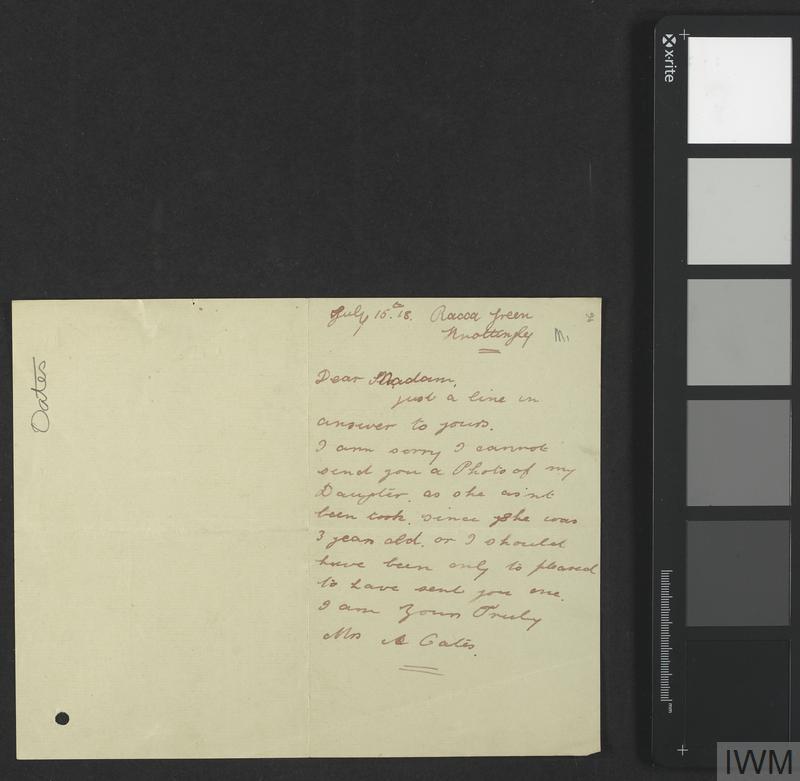 x-rite
Oates
July 15th 18. Racca Green
Knottingly
M.
Dear Madam,
just a line in
answer to yours.
I am sorry I cannot
send you a Photo of my
Daugter. as she as'nt
been took. since she was
3 years old. or I should
have been only to pleased
to have sent you one.
I am Yours Truly
Mrs A Oates.
mm
IWM